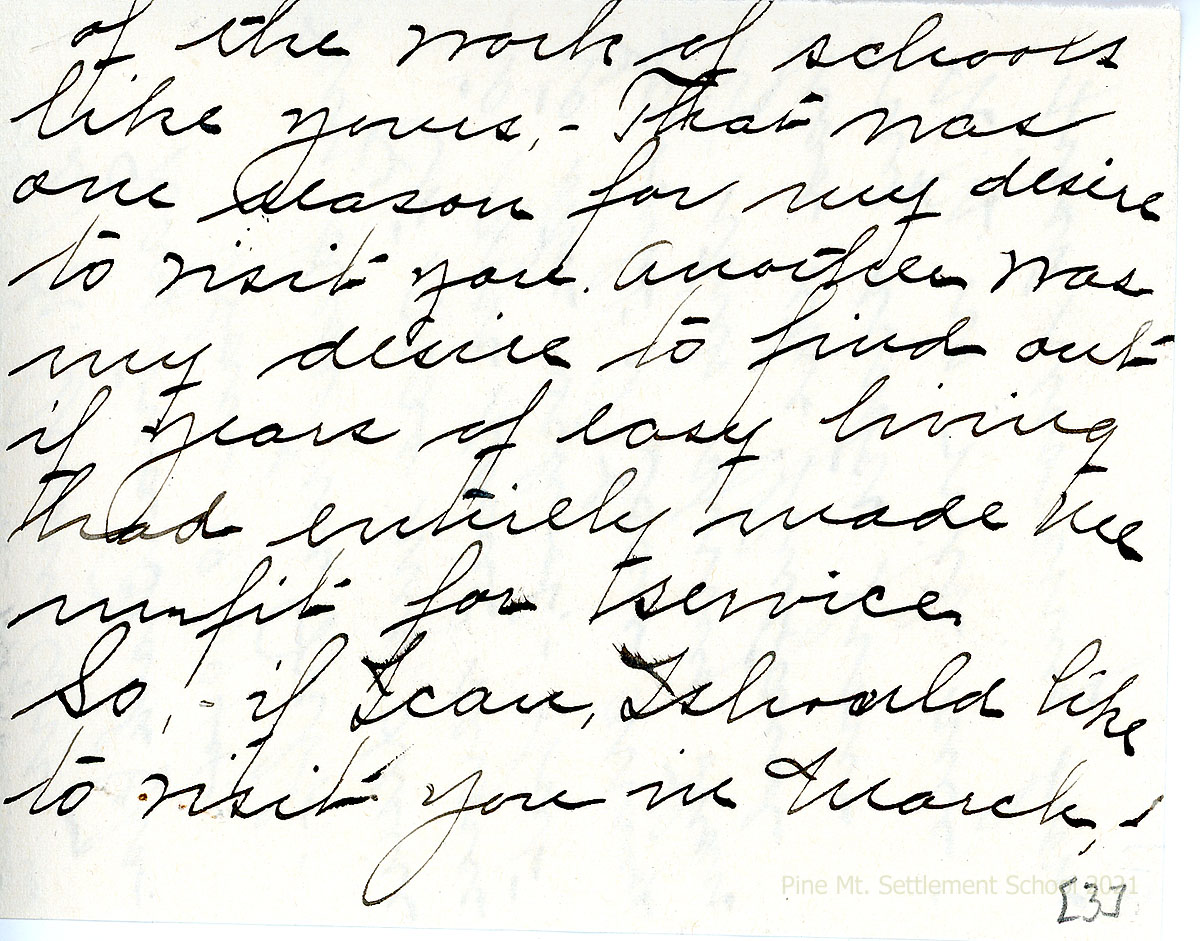 of the work of schools
like yours, - That was
one reason for my desire
to visit you. Another was
my desire to find out
if years of easy living
had entirely made me
unfit for service.
So, - if I can, I should like
to visit you in March, -
Pine Mt. Settlement School 2021
[3]